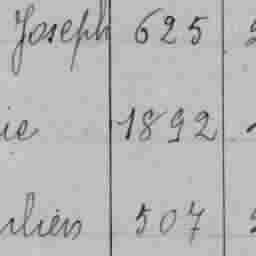 Joseph 625
ie 1892
ulien 507